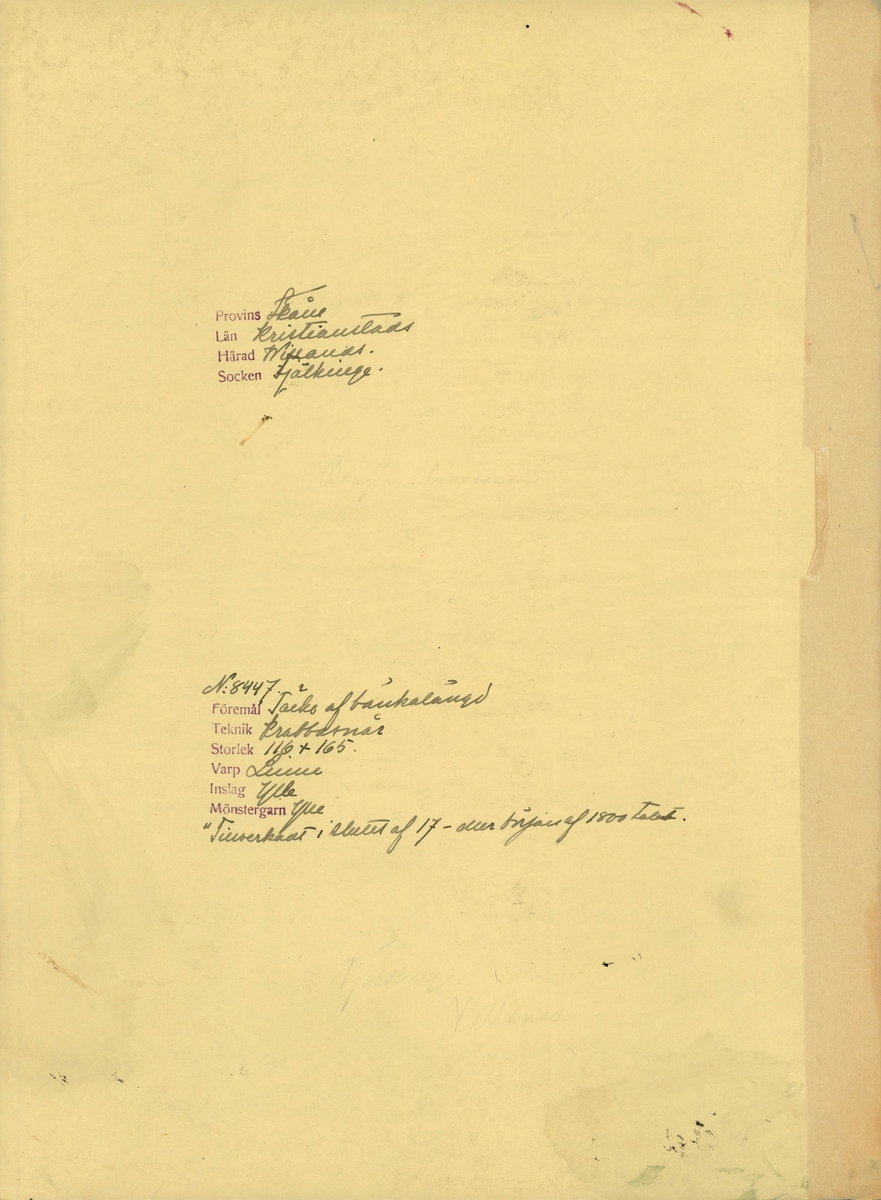 Provins Skåne
Län Kristianstads
Härad Willands.
Socken Fjälkinge.
Bengta
N:8447.
Föremål af bänkalängd
Teknik Krabbasnår
Storlek 116 + 165.
Varp Linne
Inslag Ylle
Mönstergarn Ylle
"Tillverkadt i slutet af 17 - eller början af 1800 talet.
Fjälkinge
Villands